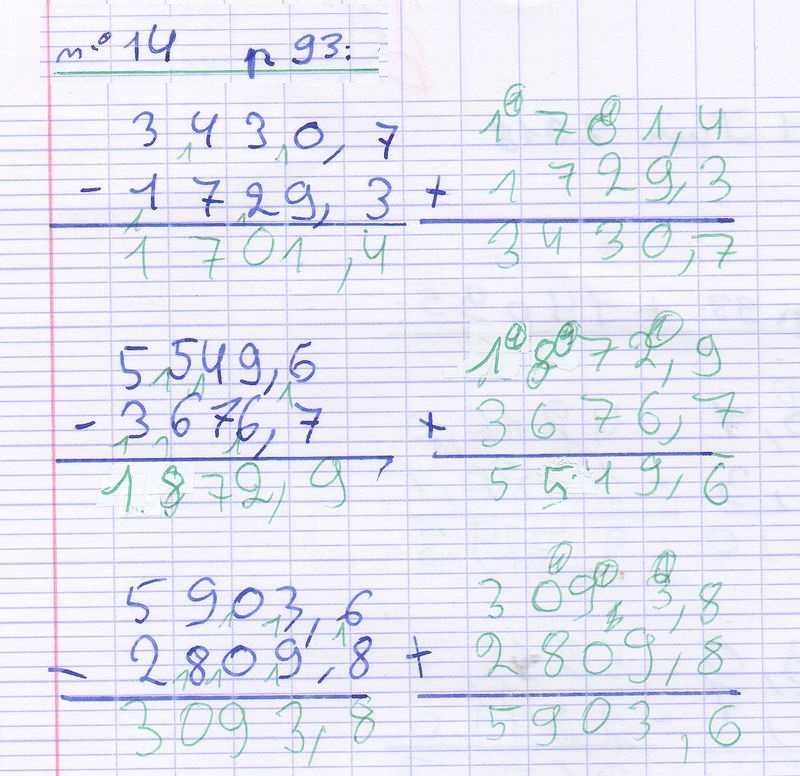 n° 14 p 93:
3430,7
- 1729,3
1701,4
1701,4
+ 1729,3
3430,7
5549,6
- 3676,7
1872,9
1872,9
+ 3676,7
5519,6
5903,6
- 2809,8
3093,8
3093,8
+ 2809,8
5903,6